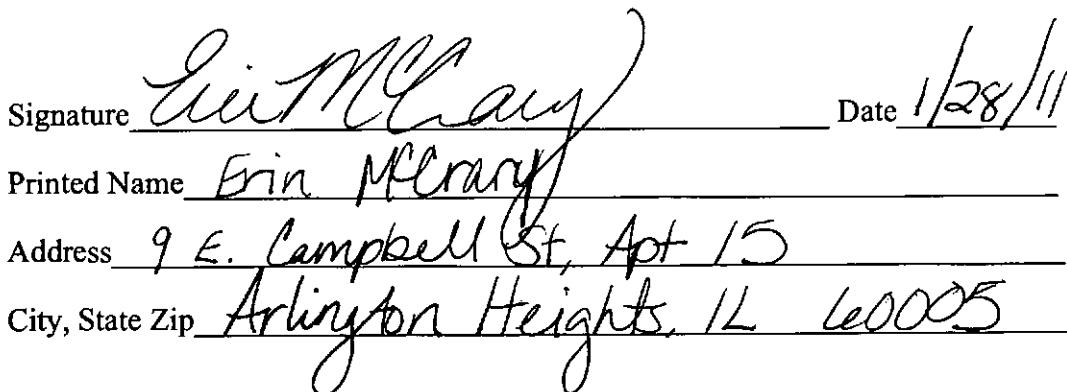 Signature Erin McCrary Date 1/28/11
Printed Name Erin McCrary
Address 9 E. Campbell St, Apt 15
City, State Zip Arlington Heights, IL 60005